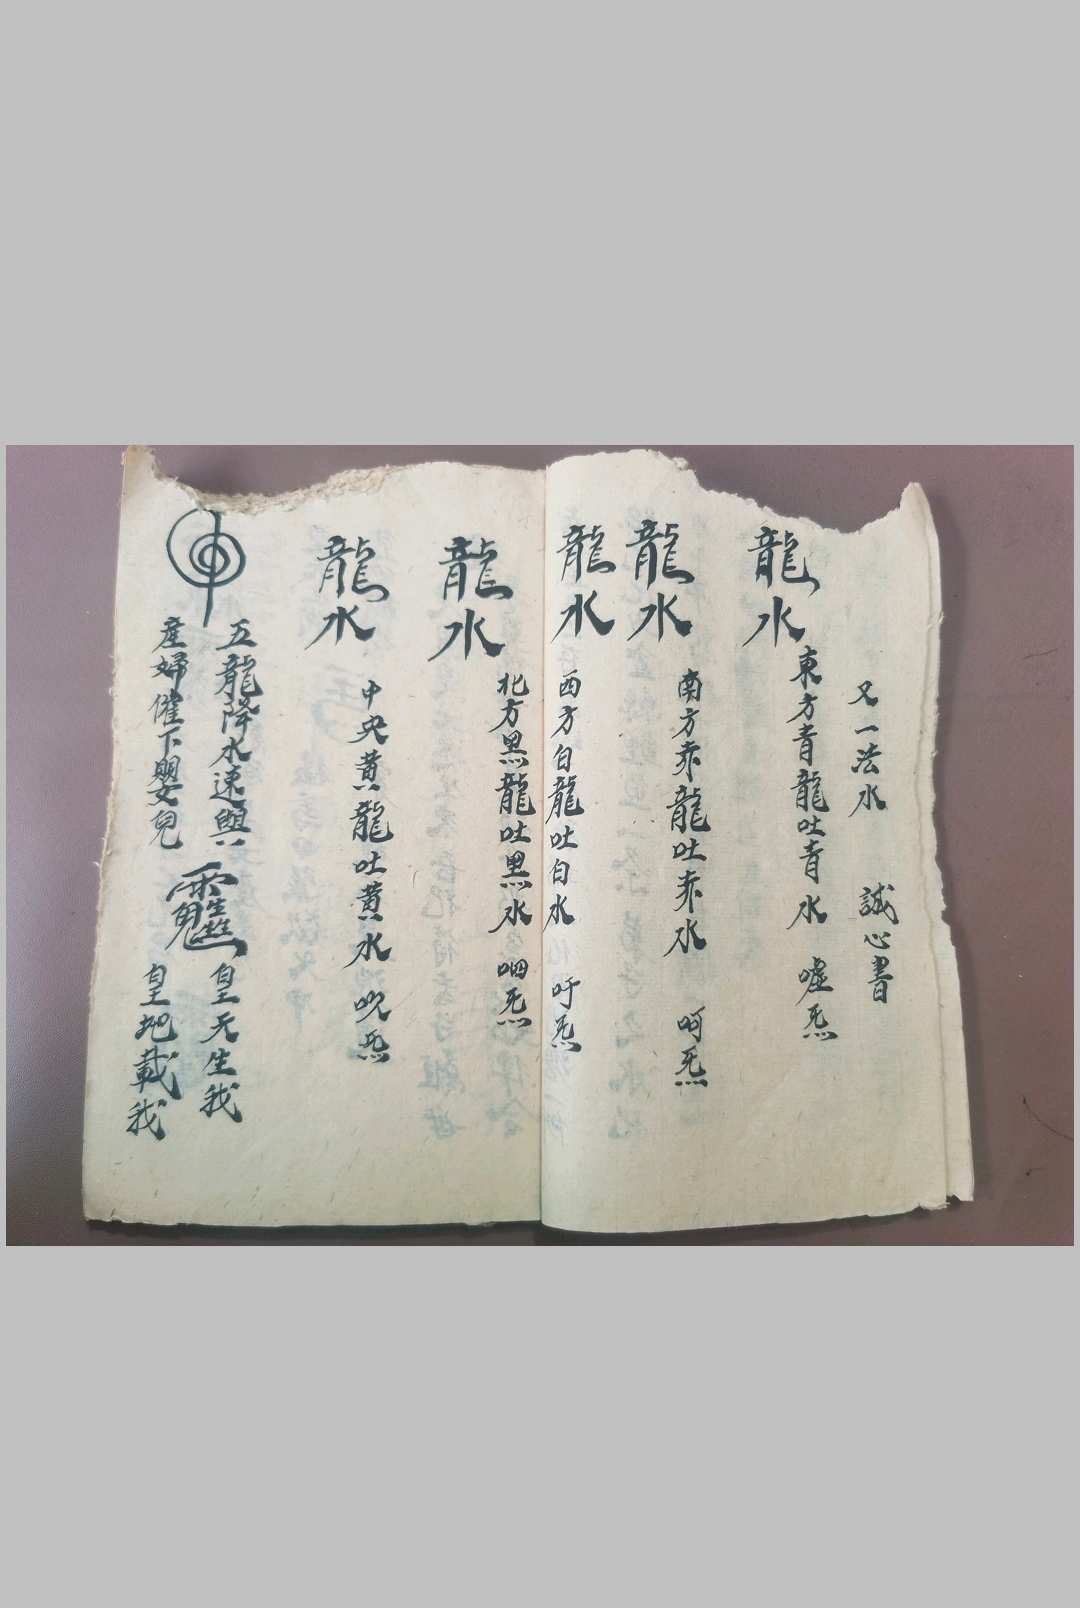 又一法水 誠心書
龍水 東方青龍吐青水 噓炁
龍水 南方赤龍吐赤水 呵炁
龍水 西方白龍吐白水 呼炁
龍水 北方黑龍吐黑水 呬炁
龍水 中央黃龍吐黃水 吹炁
五龍降水速與
產婦催下嬰兒
皇天生我
皇地載我